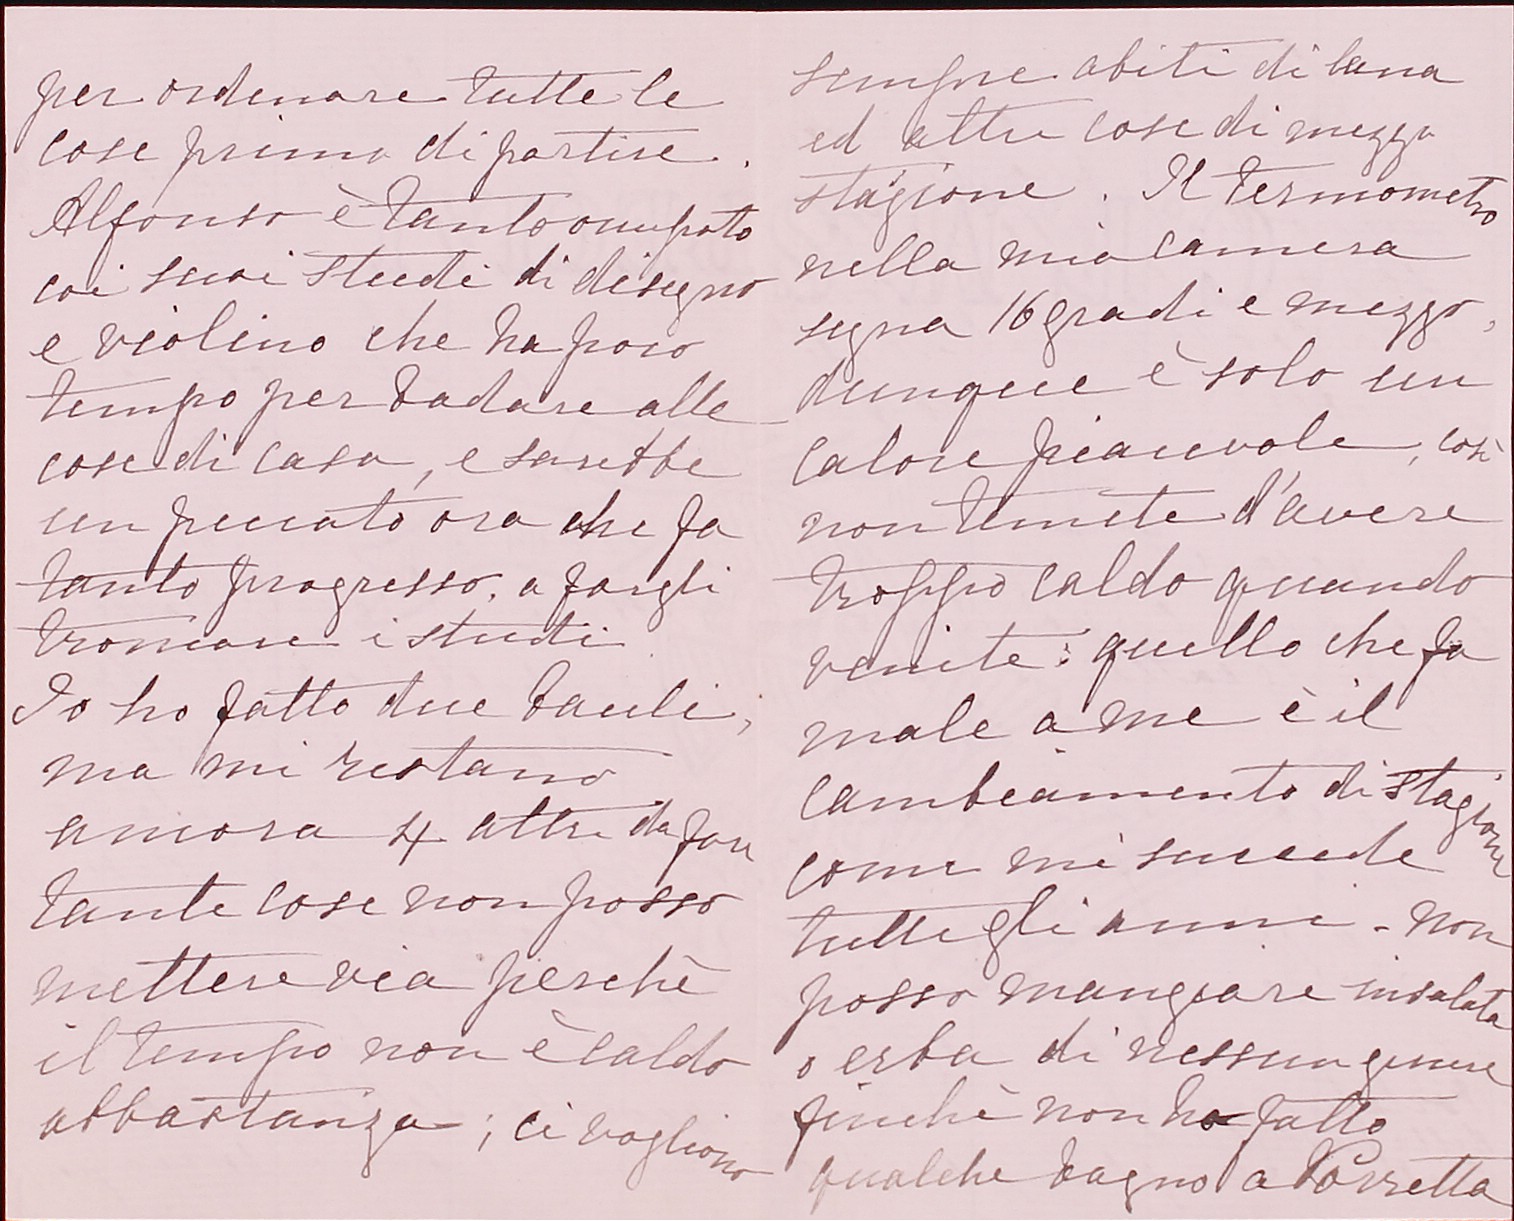 per ordinare tutte le
cose prima di partire.
Alfonso è tanto occupato
coi suoi studi di disegno
e violino che ha poco
tempo per badare alle
cose di casa, e sarebbe
un peccato ora che fa
tanto progresso, a fargli
troncare i studi
Io ho fatto due bauli,
ma mi restano
ancora 4 altri da fare
tante cose non posso
mettere via perchè
il tempo non è caldo
abbastanza; ci vogliono
sempre abiti di lana
ed altre cose di mezza
stagione. Il termometro
nella mia camera
segna 16 gradi e mezzo,
dunque è solo un
calore piacevole, così
non temete d'avere
troppo caldo quando
venite: quello che fa
male a me è il
cambiamento di stagione
come mi succede
tutti gli anni - non
posso mangiare insalata
o erba di nessun genere
finchè non ho fatto
qualche bagno a Porretta